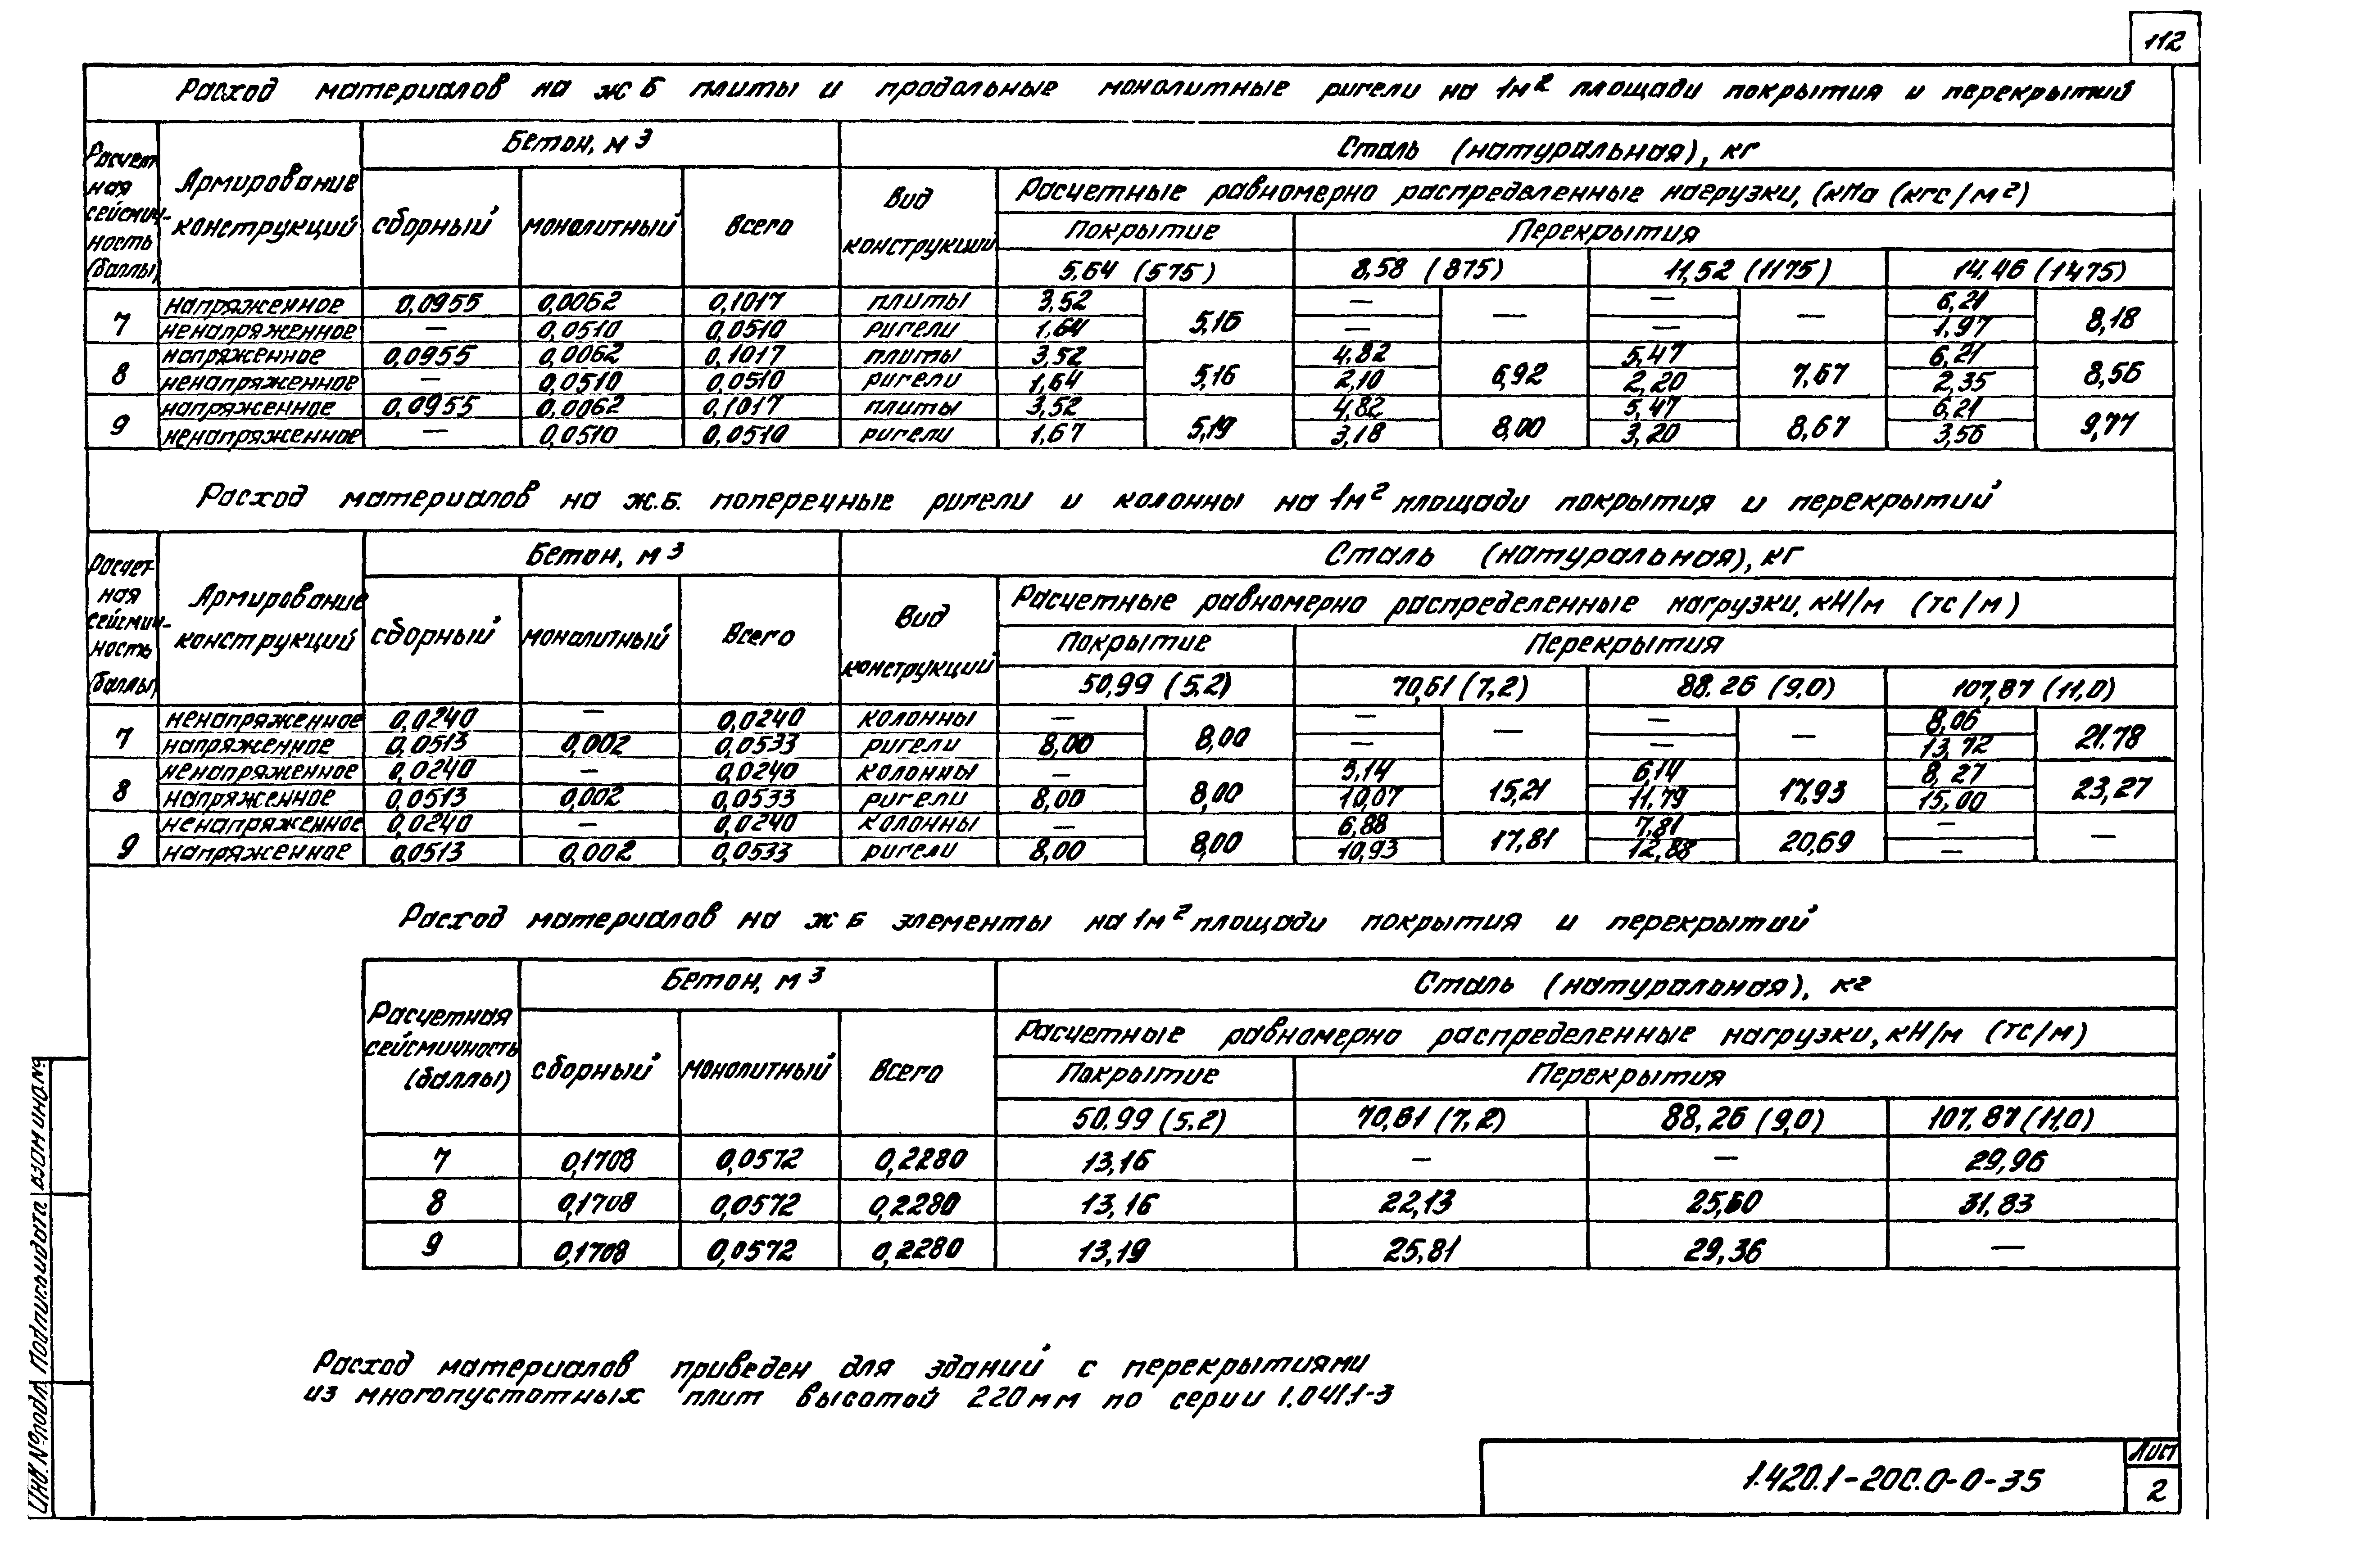 112
Расход материалов на ж Б плиты и продольные монолитные ригели на 1м² площади покрытия и перекрытий
Расчет
ная
сейсмич-
ность
(баллы)
Армирование
конструкций
Бетон, м³
сборный
монолитный
Всего
Вид
конструкций
Сталь (натуральная), кг
Расчетные равномерно распределенные нагрузки, (кПа (кгс/м²)
Покрытие
Перекрытия
5,64 (575) 8,58 (875) 11,52 (1175) 14.46 (1475)
7
напряженное 0,0955 0,0062 0,1017 плиты 3,52 5,16 — — — — 6,21 8,18
ненапряженное — 0,0510 0,0510 ригели 1,64 — — 1,97
8
напряженное 0,0955 0,0062 0,1017 плиты 3,52 5,16 4,82 6,92 5,47 7,67 6,21 8,56
ненапряженное — 0,0510 0,0510 ригели 1,64 2,10 2,20 2,35
9
напряженное 0,0955 0,0062 0,1017 плиты 3,52 5,19 4,82 8,00 5,47 8,67 6,21 9,77
ненапряженное — 0,0510 0,0510 ригели 1,67 3,18 3,20 3,56
Расход материалов на ж.Б. поперечные ригели и колонны на 1м² площади покрытия и перекрытий
Расчет-
ная
сейсмич-
ность
(баллы)
Армирование
конструкций
Бетон, м³
сборный
монолитный
Всего
Вид
конструкций
Сталь (натуральная), кг
Расчетные равномерно распределенные нагрузки, кН/м (тс/м)
Покрытие
Перекрытия
50,99 (5,2) 70,61 (7,2) 88.26 (9,0) 107,87 (11,0)
7
ненапряженное 0,0240 — 0,0240 колонны — 8,00 — — — — 8,06 21.78
напряженное 0,0513 0,002 0,0533 ригели 8,00 — — 13,72
8
ненапряженное 0,0240 — 0,0240 колонны — 8,00 5,14 15,21 6,14 17,93 8,27 23,27
напряженное 0,0513 0,002 0,0533 ригели 8,00 10,07 11,79 15,00
9
ненапряженное 0,0240 — 0,0240 колонны — 8,00 6,88 17,81 7,81 20,69 — —
напряженное 0,0513 0,002 0,0533 ригели 8,00 10,93 12,88 —
Расход материалов на ж Б элементы на 1м² площади покрытия и перекрытий
Расчетная
сейсмичность
(баллы)
Бетон, м³
сборный
монолитный
Всего
Сталь (натуральная), кг
Расчетные равномерно распределенные нагрузки, кН/м (тс/м)
Покрытие
Перекрытия
50.99 (5.2) 70,61 (7,2) 88,26 (9,0) 107.87 (11,0)
7 0,1708 0,0572 0,2280 13,16 — — 29,96
8 0,1708 0,0572 0,2280 13,16 22,13 25,60 31,83
9 0,1708 0,0572 0,2280 13,19 25,81 29,36 —
Расход материалов приведен для зданий с перекрытиями
из многопустотных плит высотой 220мм по серии 1.041.1-3
Инв.№подл. Подпись и дата Взам инв.№
1.420.1-20С.0-0-35
Лист
2